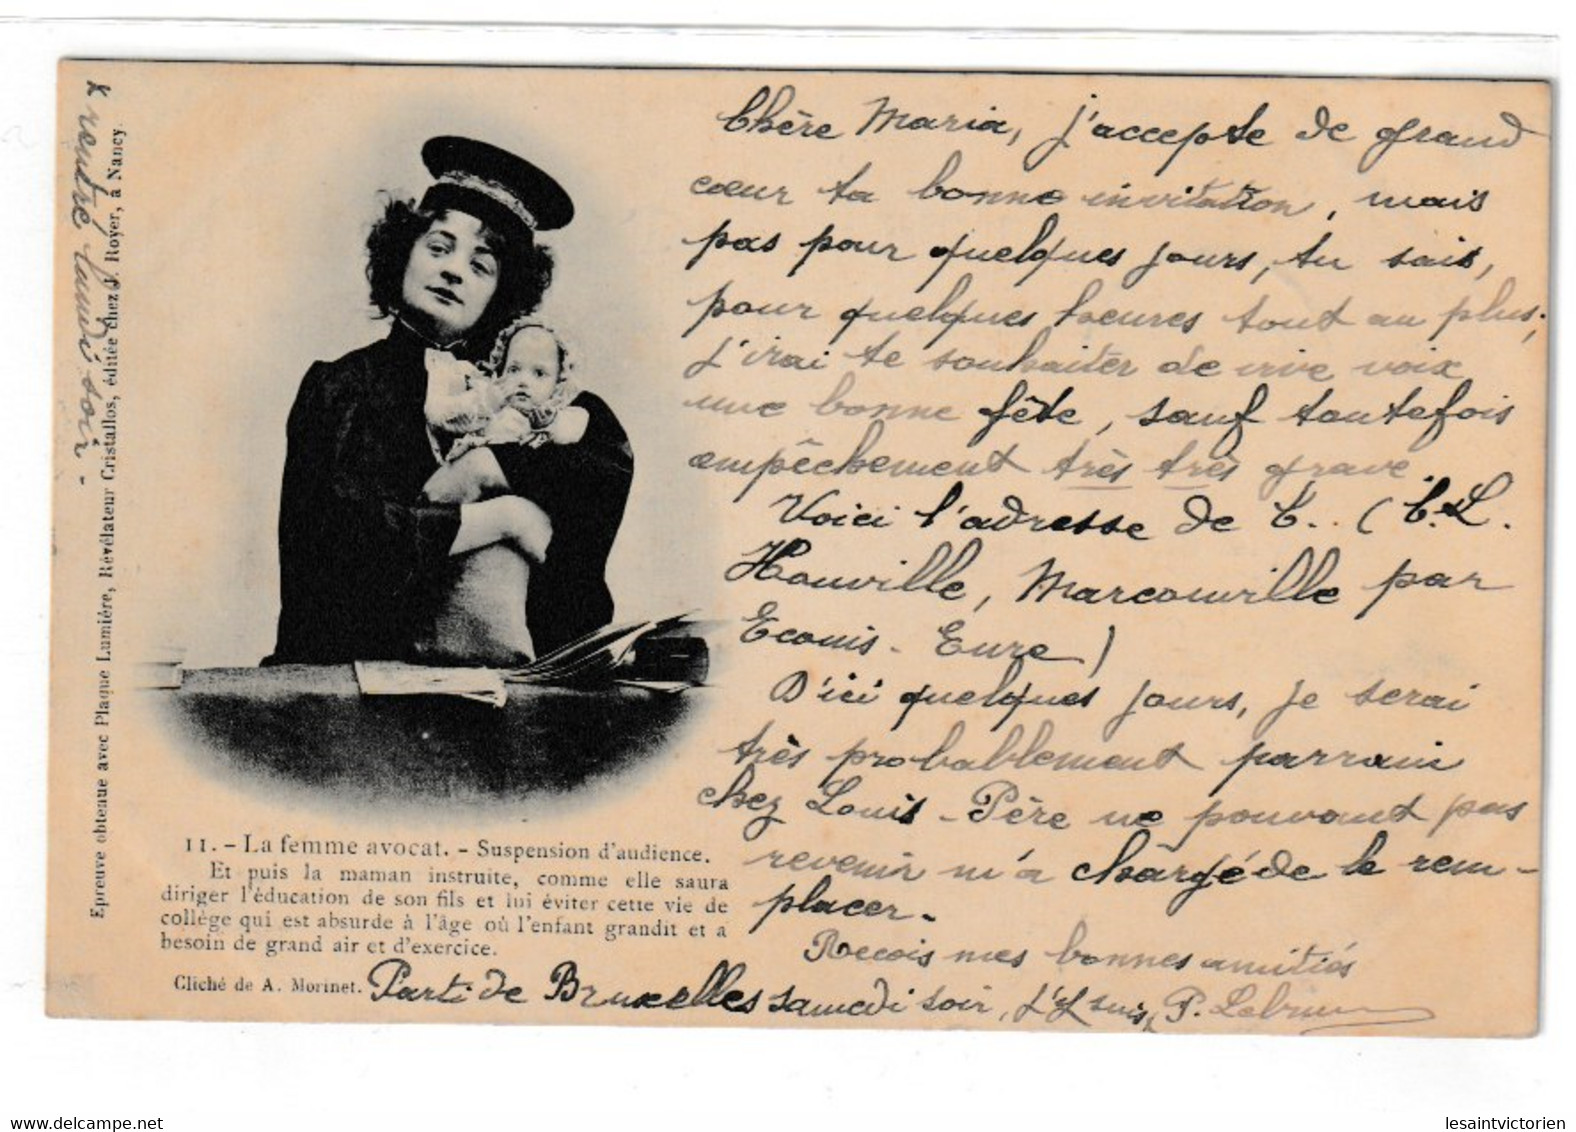 Chère Maria, j'accepte de grand
cœur ta bonne invitation, mais
pas pour quelques jours, tu sais,
pour quelques heures tout au plus;
j'irai te souhaiter de vive voix
une bonne fête, sauf toutefois
empêchement très très grave.
Voici l'adresse de C.. (C. & L.
Houville, Marcouville par
Ecouis - Eure)
D'ici quelques jours, je serai
très probablement parrain
chez Louis - Père ne pouvant pas
revenir m'a chargé de le rem-
placer.
Recois mes bonnes amitiés
Parti de Bruxelles samedi soir, j'y suis P. Lebrun
rentré lundi soir -
Epreuve obtenue avec Plaque Lumière, Révélateur Cristallos, éditée chez J. Royer, à Nancy.
11. - La femme avocat. - Suspension d'audience.
Et puis la maman instruite, comme elle saura
diriger l'éducation de son fils et lui éviter cette vie de
collège qui est absurde à l'âge où l'enfant grandit et a
besoin de grand air et d'exercice.
Cliché de A. Morinet.
www.delcampe.net
lesaintvictorien